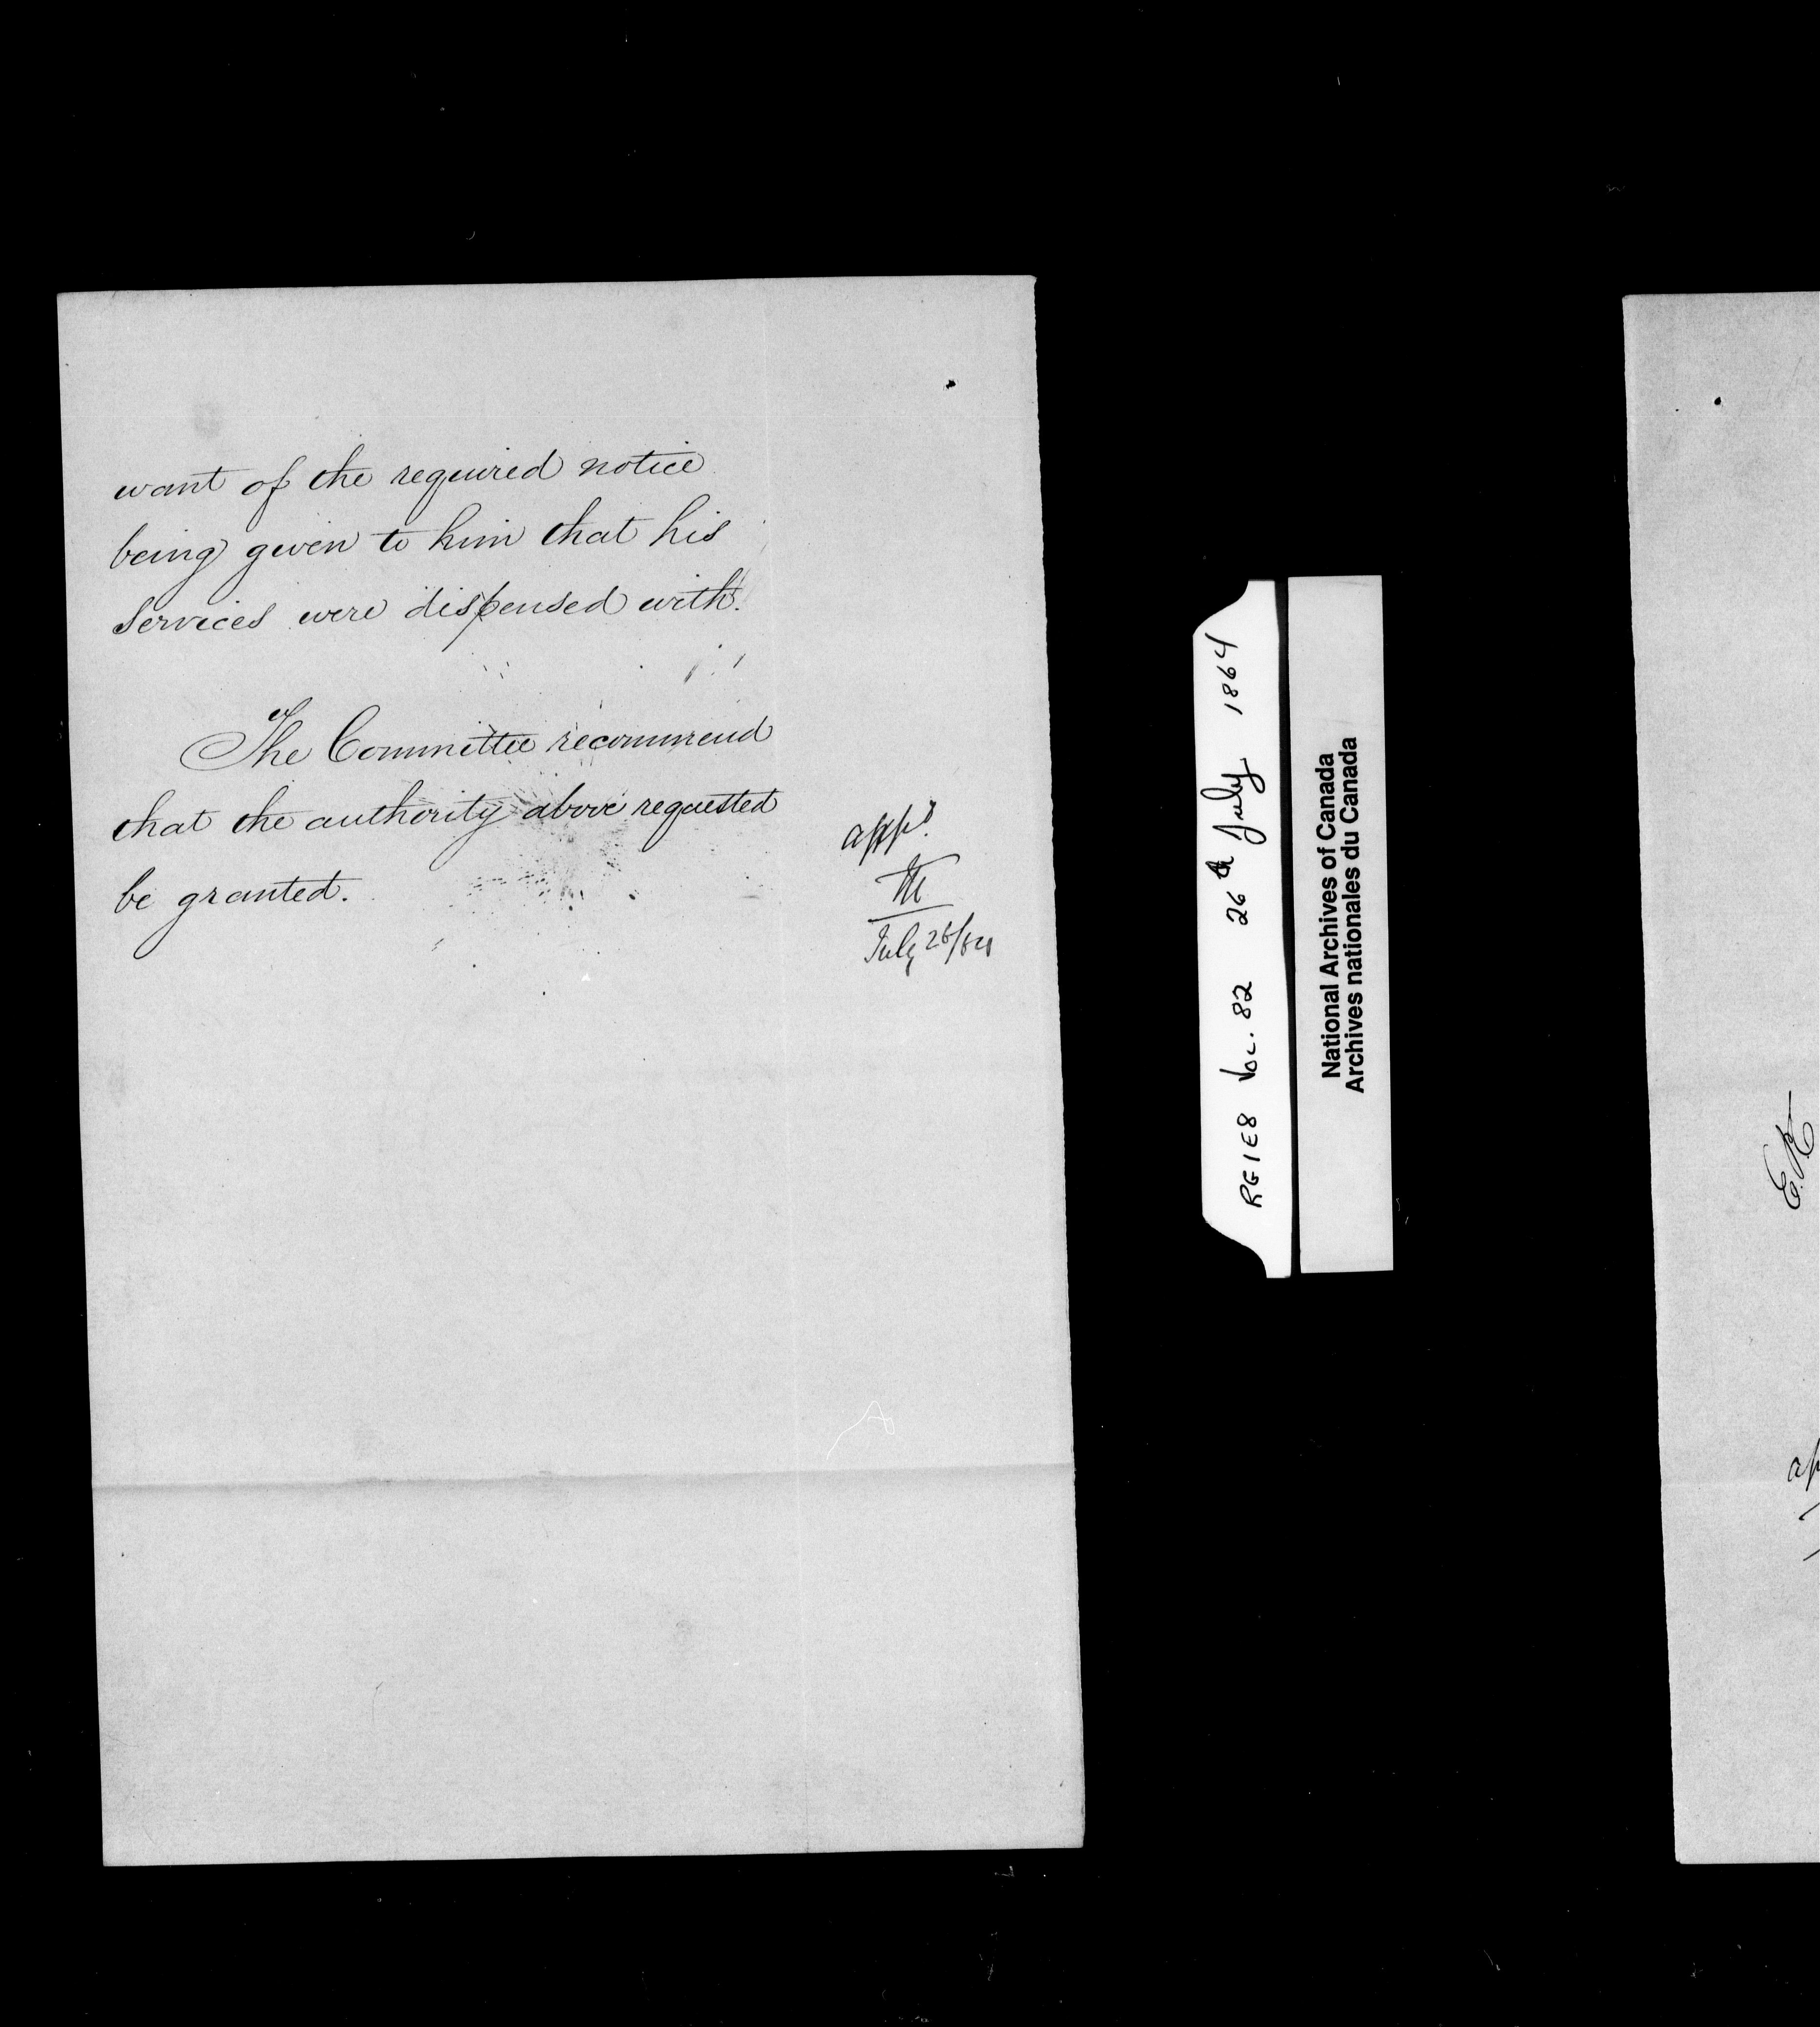 want of the required notice
being given to him that his
services were dispensed with.
The Committee recommend
that the authority above requested
be granted.
appd.
July 26/64
RG1E8 VOL. 82 26th July 1864
National Archives of Canada
Archives nationales du Canada